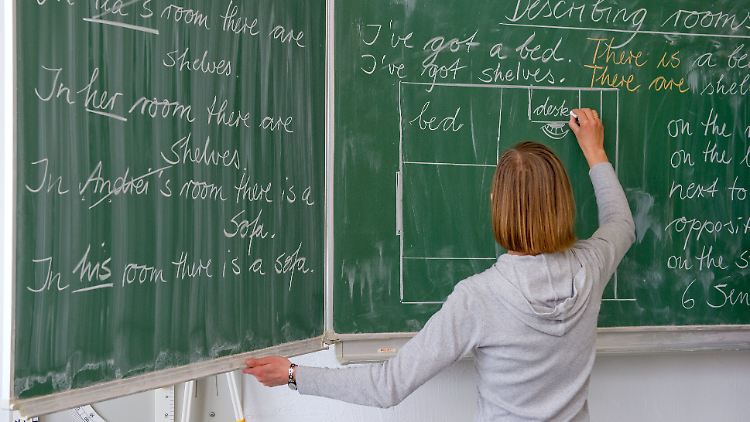 In Ida's room there are
shelves.
In her room there are
shelves.
In Andrei's room there is a
sofa.
In his room there is a sofa.
Describing rooms
I've got a bed.
I've got shelves.
There is a be
There are shel
bed
desk
on the
on the
next to
opposit
on the
6 Sen